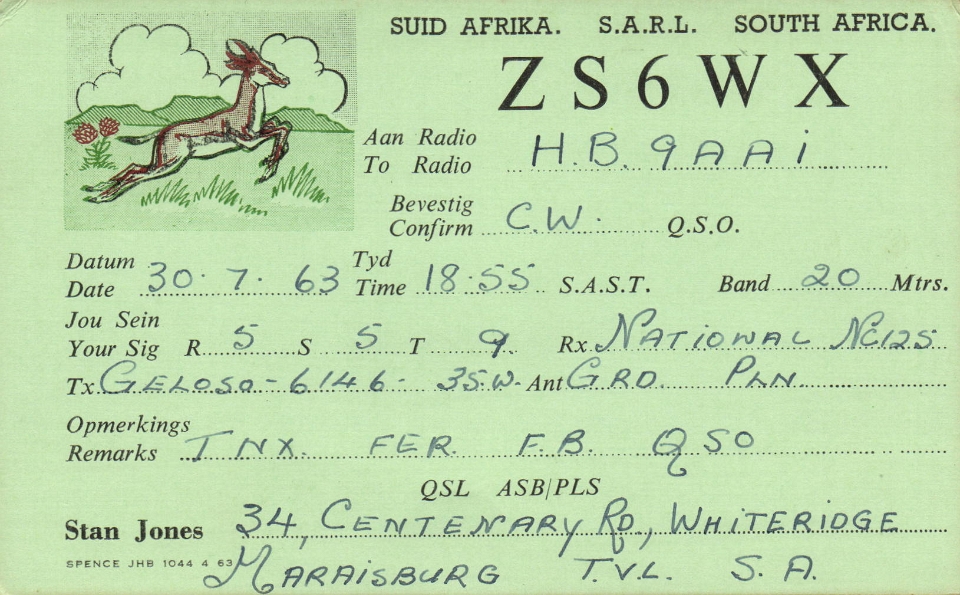 SUID AFRIKA. S.A.R.L. SOUTH AFRICA.
ZS6WX
Aan Radio
To Radio H.B. 9AAi
Bevestig
Confirm C.W. Q.S.O.
Datum Tyd
Date 30. 7. 63 Time 18.55 S.A.S.T. Band 20 Mtrs.
Jou Sein
Your Sig R 5 S 5 T 9. Rx NATiONAL NC125
Tx GELOSO - 6146 - 35.W. Ant GRD. PLN.
Opmerkings
Remarks TNX. FER. F.B. QSO
QSL ASB/PLS
Stan Jones 34, CENTENARY RD, WHITERIDGE
SPENCE JHB 1044 4 63 MARAISBURG T.V.L. S.A.